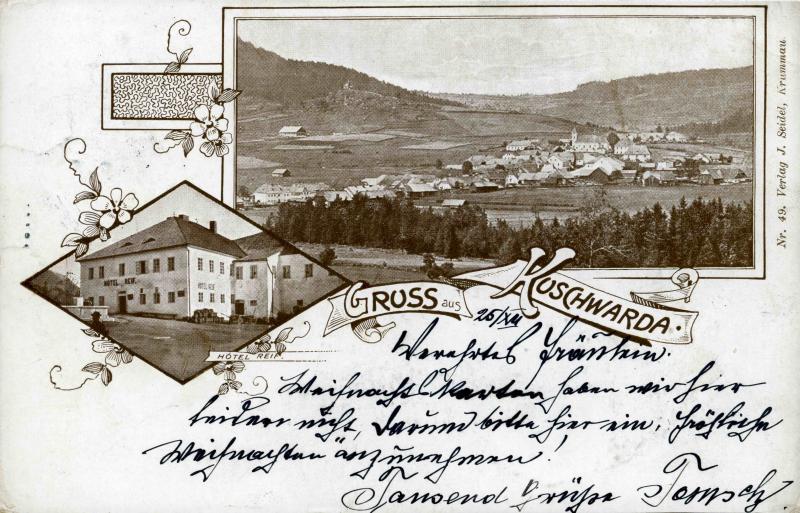 Nr. 49. Verlag J. Seidel, Krummau
HÔTEL REIF.
HÔTEL REIF
HÔTEL REIF.
GRUSS aus KUSCHWARDA.
25/XII
Verehrtes Fräulein.
Weihnachtskarten haben wir hier
leider nicht, darum bitte hier ein, fröhliche
Weihnachten" anzunehmen!
Tausend Grüße